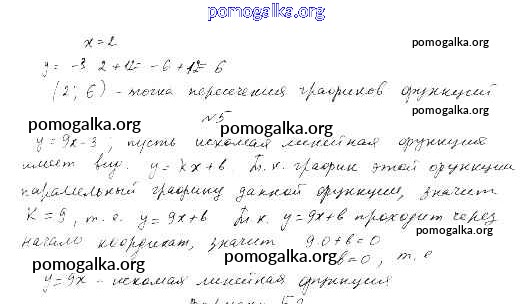 pomogalka.org
x = 2
pomogalka.org
y = -3·2+12 = -6+12 = 6
(2; 6) - точка пересечения графиков функций
pomogalka.org
№5
pomogalka.org
y = 9x-3, пусть искомая линейная функция
имеет вид. y = kx+b. Т.к. график этой функции
pomogalka.org pomogalka.org
параллельный графику данной функции, значит
k = 9, т.е. y = 9x+b Т.к. y = 9x+b проходит через
pomogalka.org
начало координат, значит 9·0+b=0
pomogalka.org pomogalka.org b=0, т.е
y = 9x - искомая линейная функция